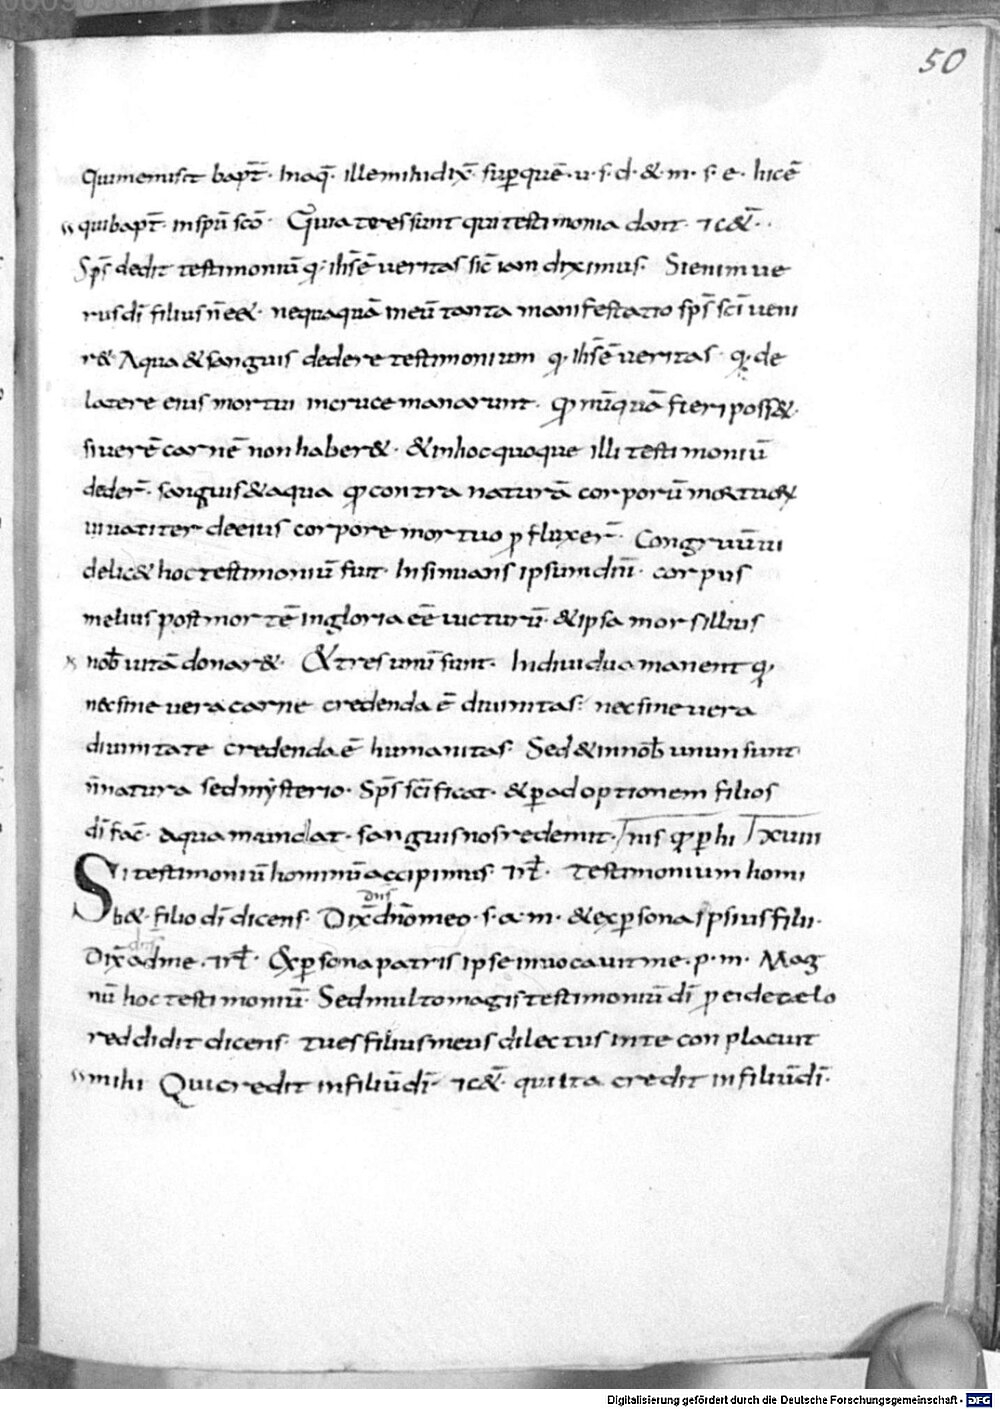 50
quimemisit bapt̄· Inaq̄· illemihidix̄· sup̱quē·u·s·d·&·m·s·e· hicē
quibapt̄· inspū scō· Quia tres sunt qui testimonia dant· ⁊c&̄··
Sp̄s dedit testimoniū q· ih̄s ē veritas sic̄ iam diximus· Sienim ue
rus dī filius n̄ e&· nequaquā in eū tanta manifestatio sp̄s sc̄i ueni
r& Aqua & sanguis dedere testimonium q· ih̄s ē ueritas· q· de
latere eius mortui incruce manarunt· Qd nūquā fieri poss&·
siuerē carnē non haber&· & inhoc quoque illi testimoniū
deder̄· sanguis & aqua qd contra naturā corporū mortuoꝝ
uiuaciter deeius corpore mortuo ꝓfluxer̄· Congruū ui
delic& hoc testimoniū fuit· Insinuans ipsum dn̄i· corpus
melius post mortē ingloria eē uicturū· & ipsa mors illius
nob̄ uitā donar&· & tres unū sunt· Indiuidua manent q·
nec sine uera carne credenda ē diuinitas· nec sine uera
diuinitate credenda ē humanitas· Sed & innob̄ unum sunt
n̄ natura sed mysterio· Sp̄s sc̄ificat· & p̱adoptionem filios
dī fac̄· aqua mundat· sanguis nos redemit· xuiii
Si testimoniū hominū accipimus· ⁊rł· Testimonium homi
b&· filio dī dicens· Dix̄ dn̄s dn̄o meo·s·a·m· & exp̱sona ipsius filii·
Dix̄ dn̄s adme·⁊rł· Exp̱sona patris ipse inuocauit me·p·m· Mag
nū hoc testimoniū· Sed multo magis testimoniū dī ꝓ ei decaelo
reddidit dicens· tu es filius meus dilectus inte conplacuit
mihi Qui credit infiliū dī· ⁊c&̄· qui ita credit infiliū dī·
Digitalisierung gefördert durch die Deutsche Forschungsgemeinschaft - DFG